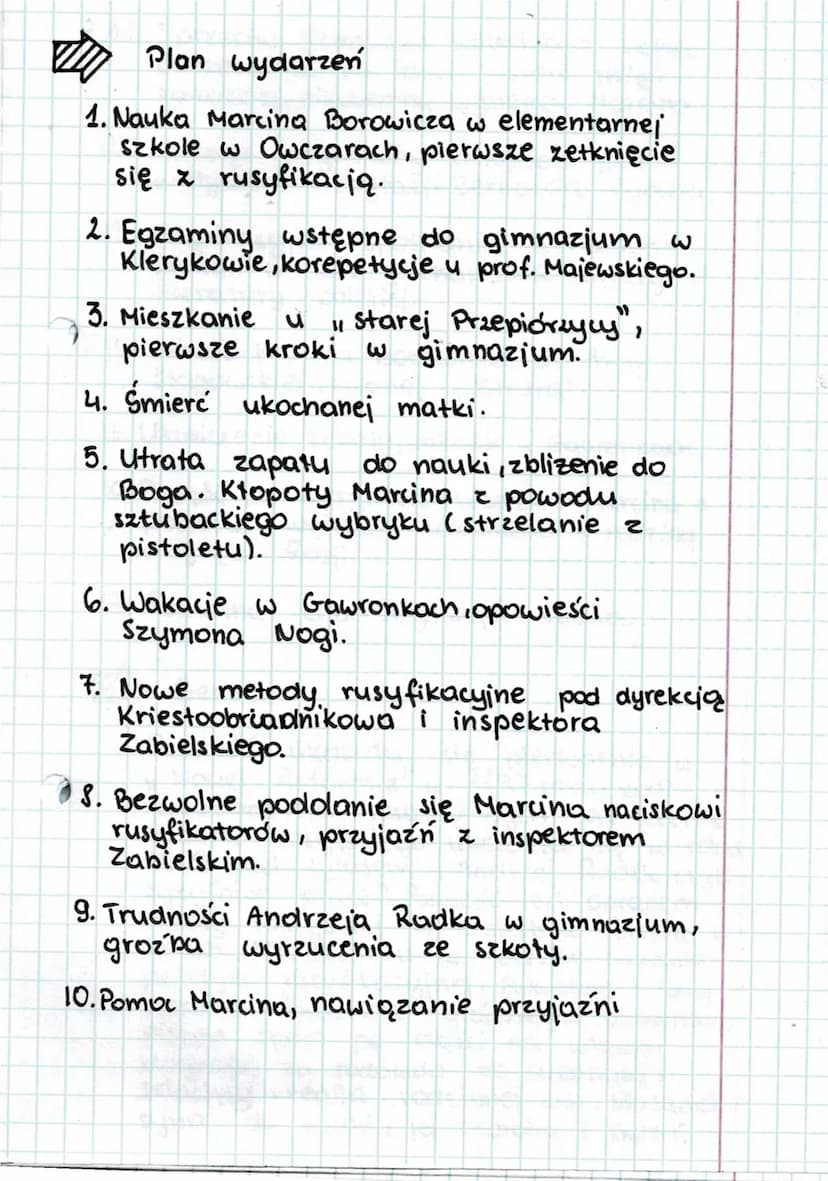 Plan wydarzeń
1. Nauka Marcina Borowicza w elementarnej
szkole w Owczarach, pierwsze zetknięcie
się z rusyfikacją.
2. Egzaminy wstępne do gimnazjum w
Klerykowie, korepetycje u prof. Majewskiego.
3. Mieszkanie u „starej Przepiórzycy",
pierwsze kroki w gimnazjum.
4. Śmierć ukochanej matki.
5. Utrata zapału do nauki, zbliżenie do
Boga. Kłopoty Marcina z powodu
sztubackiego wybryku (strzelanie z
pistoletu).
6. Wakacje w Gawronkach, opowieści
Szymona Nogi.
7. Nowe metody rusyfikacyjne pod dyrekcją
Kriestoobriadnikowa i inspektora
Zabielskiego.
8. Bezwolne poddanie się Marcina naciskowi
rusyfikatorów, przyjaźń z inspektorem
Zabielskim.
9. Trudności Andrzeja Radka w gimnazjum,
groźba wyrzucenia ze szkoły.
10. Pomoc Marcina, nawiązanie przyjaźni